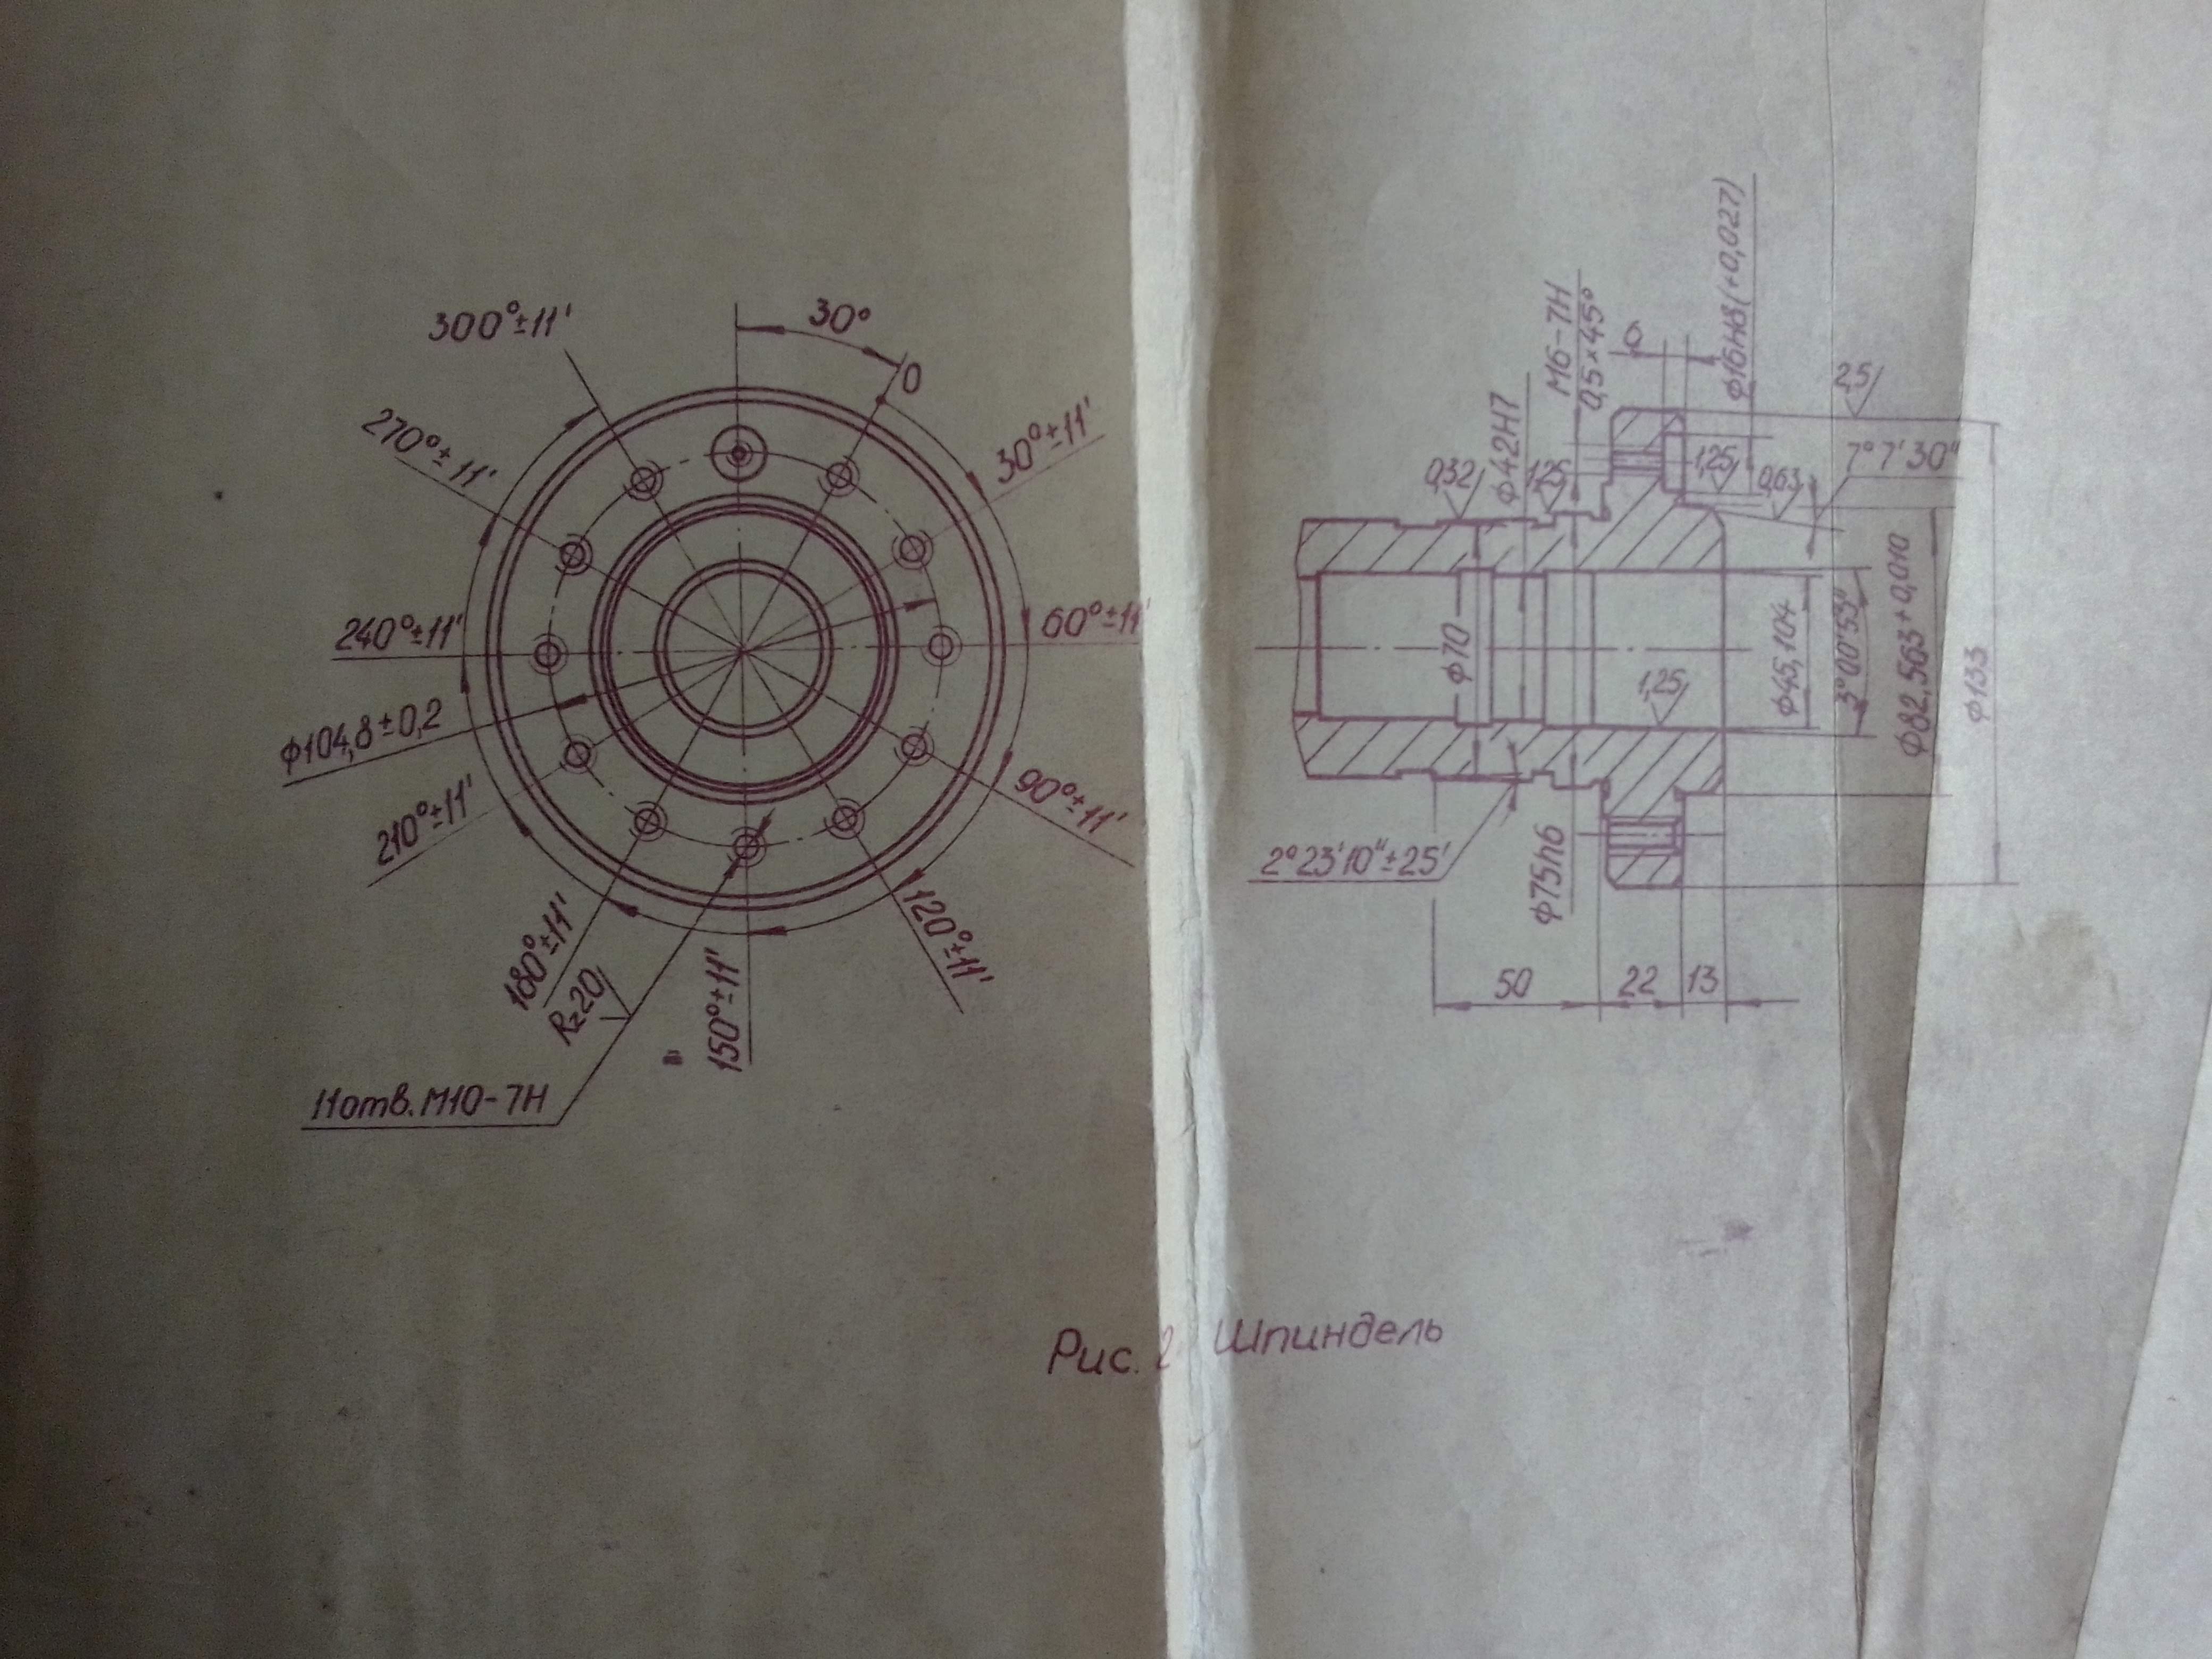 300°±11'
30°
0
270°±11'
30°±11'
240°±11'
60°±11'
ϕ104,8±0,2
210°±11'
90°±11'
180°±11'
120°±11'
Rz20
150°±11'
11отв. М10-7Н
М6-7Н
0,5×45°
ϕ16Н8(+0,027)
ϕ42Н7
2,5
0,32
1,25
1,25
0,63
7°7'30"
ϕ70
1,25
ϕ45,104
3°00'53"
ϕ82,563+0,010
ϕ133
2°23'10"±25'
ϕ75h6
50
22
13
Рис. 2 Шпиндель